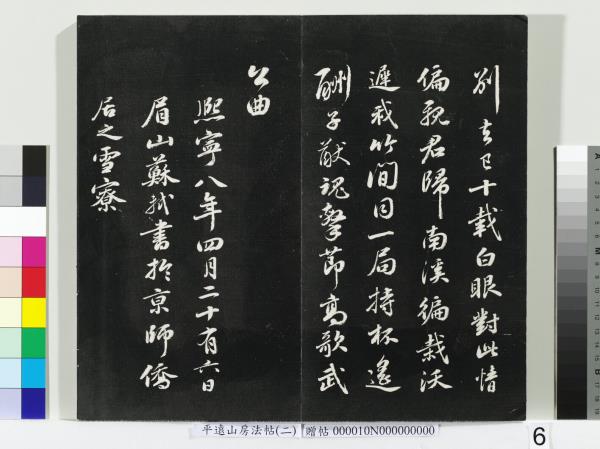 別去已十載白眼對此情
偏親君歸南溪編栽沃
遲我竹間同一局持杯遙
酬子猷魂擊節高歌武
公曲
熙寧八年四月二十有六日
眉山蘇軾書於京師僑
居之雪寮
平遠山房法帖(二) 贈帖 000010N000000000
6